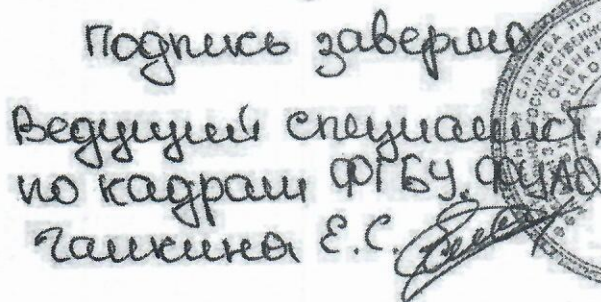 Подпись заверяю
Ведущий специалист
по кадрам ФГБУ ФЦАО
Галкина Е.С.
СЛУЖБА ПО